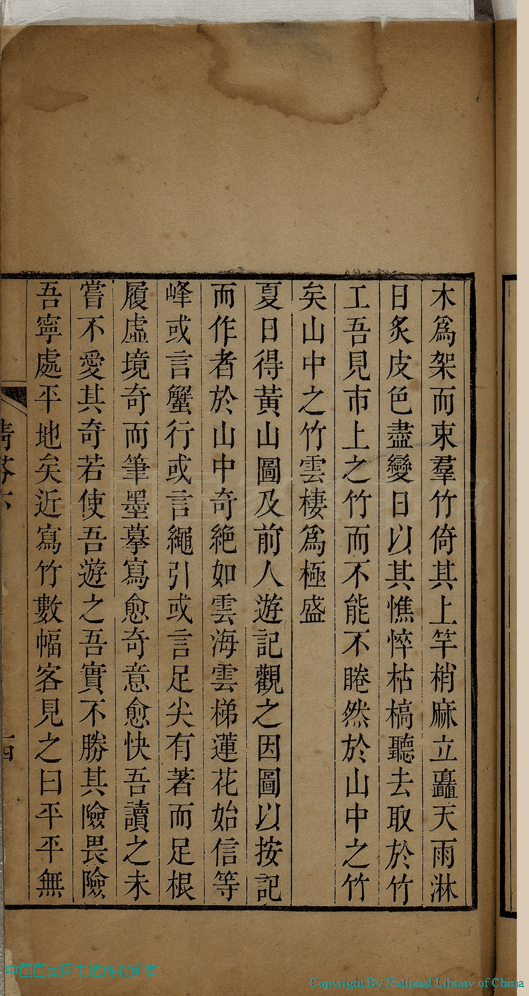 木爲架而束羣竹倚其上竿梢麻立矗天雨淋
日炙皮色盡變日以其憔悴枯槁聽去取於竹
工吾見市上之竹而不能不睠然於山中之竹
矣山中之竹雲棲爲極盛
夏日得黃山圖及前人遊記觀之因圖以按記
而作者於山中奇絶如雲海雲梯蓮花始信等
峰或言蟹行或言繩引或言足尖有著而足根
履虛境奇而筆墨摹寫愈奇意愈快吾讀之未
嘗不愛其奇若使吾遊之吾實不勝其險畏險
吾寧處平地矣近寫竹數幅客見之曰平平無
Copyright By National Library of China